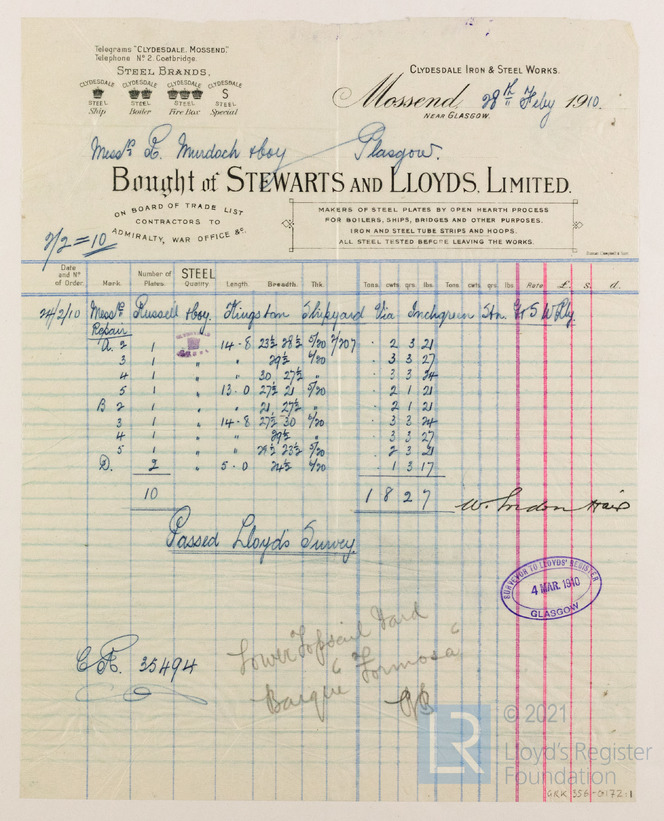 Telegrams "CLYDESDALE, MOSSEND."
Telephone Nº 2. Coatbridge.
STEEL BRANDS.
CLYDESDALE CLYDESDALE CLYDESDALE CLYDESDALE
S
STEEL STEEL STEEL STEEL
Ship Boiler Fire Box Special
CLYDESDALE IRON & STEEL WORKS.
Mossend, 28th Feby 1910.
NEAR GLASGOW.
Messrs R. Murdoch & Coy Glasgow.
Bought of STEWARTS AND LLOYDS, LIMITED.
ON BOARD OF TRADE LIST
CONTRACTORS TO
ADMIRALTY, WAR OFFICE &c.
MAKERS OF STEEL PLATES BY OPEN HEARTH PROCESS
FOR BOILERS, SHIPS, BRIDGES AND OTHER PURPOSES.
IRON AND STEEL TUBE STRIPS AND HOOPS.
ALL STEEL TESTED BEFORE LEAVING THE WORKS.
2/2=10
Date and Nº of Order. Mark. Number of Plates. STEEL Quality Length. Breadth. Thk. Tons. cwts. qrs. lbs. Tons cwts. qrs. lbs Rate £. s. d.
24/2/10 Messrs Russell & Coy. Kingston Shipyard Via Inchgreen Stn. G & S W Rly.
Repair
A. 2 1 14-8 23½ 28½ 5/20 2/207 . 2 3 21
3 1 " " 29½ 6/20 . 3 3 27
4 1 " " 30 27½ " . 3 3 24
5 1 " 13.0 27½ 21 5/20 . 2 1 21
B 2 1 " " 21, 27½ " . 2 1 21
3 1 " 14-8 27½ 30 6/20 . 3 3 24
4 1 " " 29½ " . 3 3 27
5 1 " " 28½ 23½ 5/20 . 2 3 21
D. 2 " 5.0 24½ 6/20 . 1 3 17
10 1 8 2 7
Passed Lloyd's Survey.
SURVEYOR TO LLOYDS' REGISTER
4 MAR. 1910
GLASGOW
C.R. 35494
Lower Topsail Yard
Barque "Formosa"
LR
© 2021
Lloyd's Register
Foundation
GRK 356-0172:1